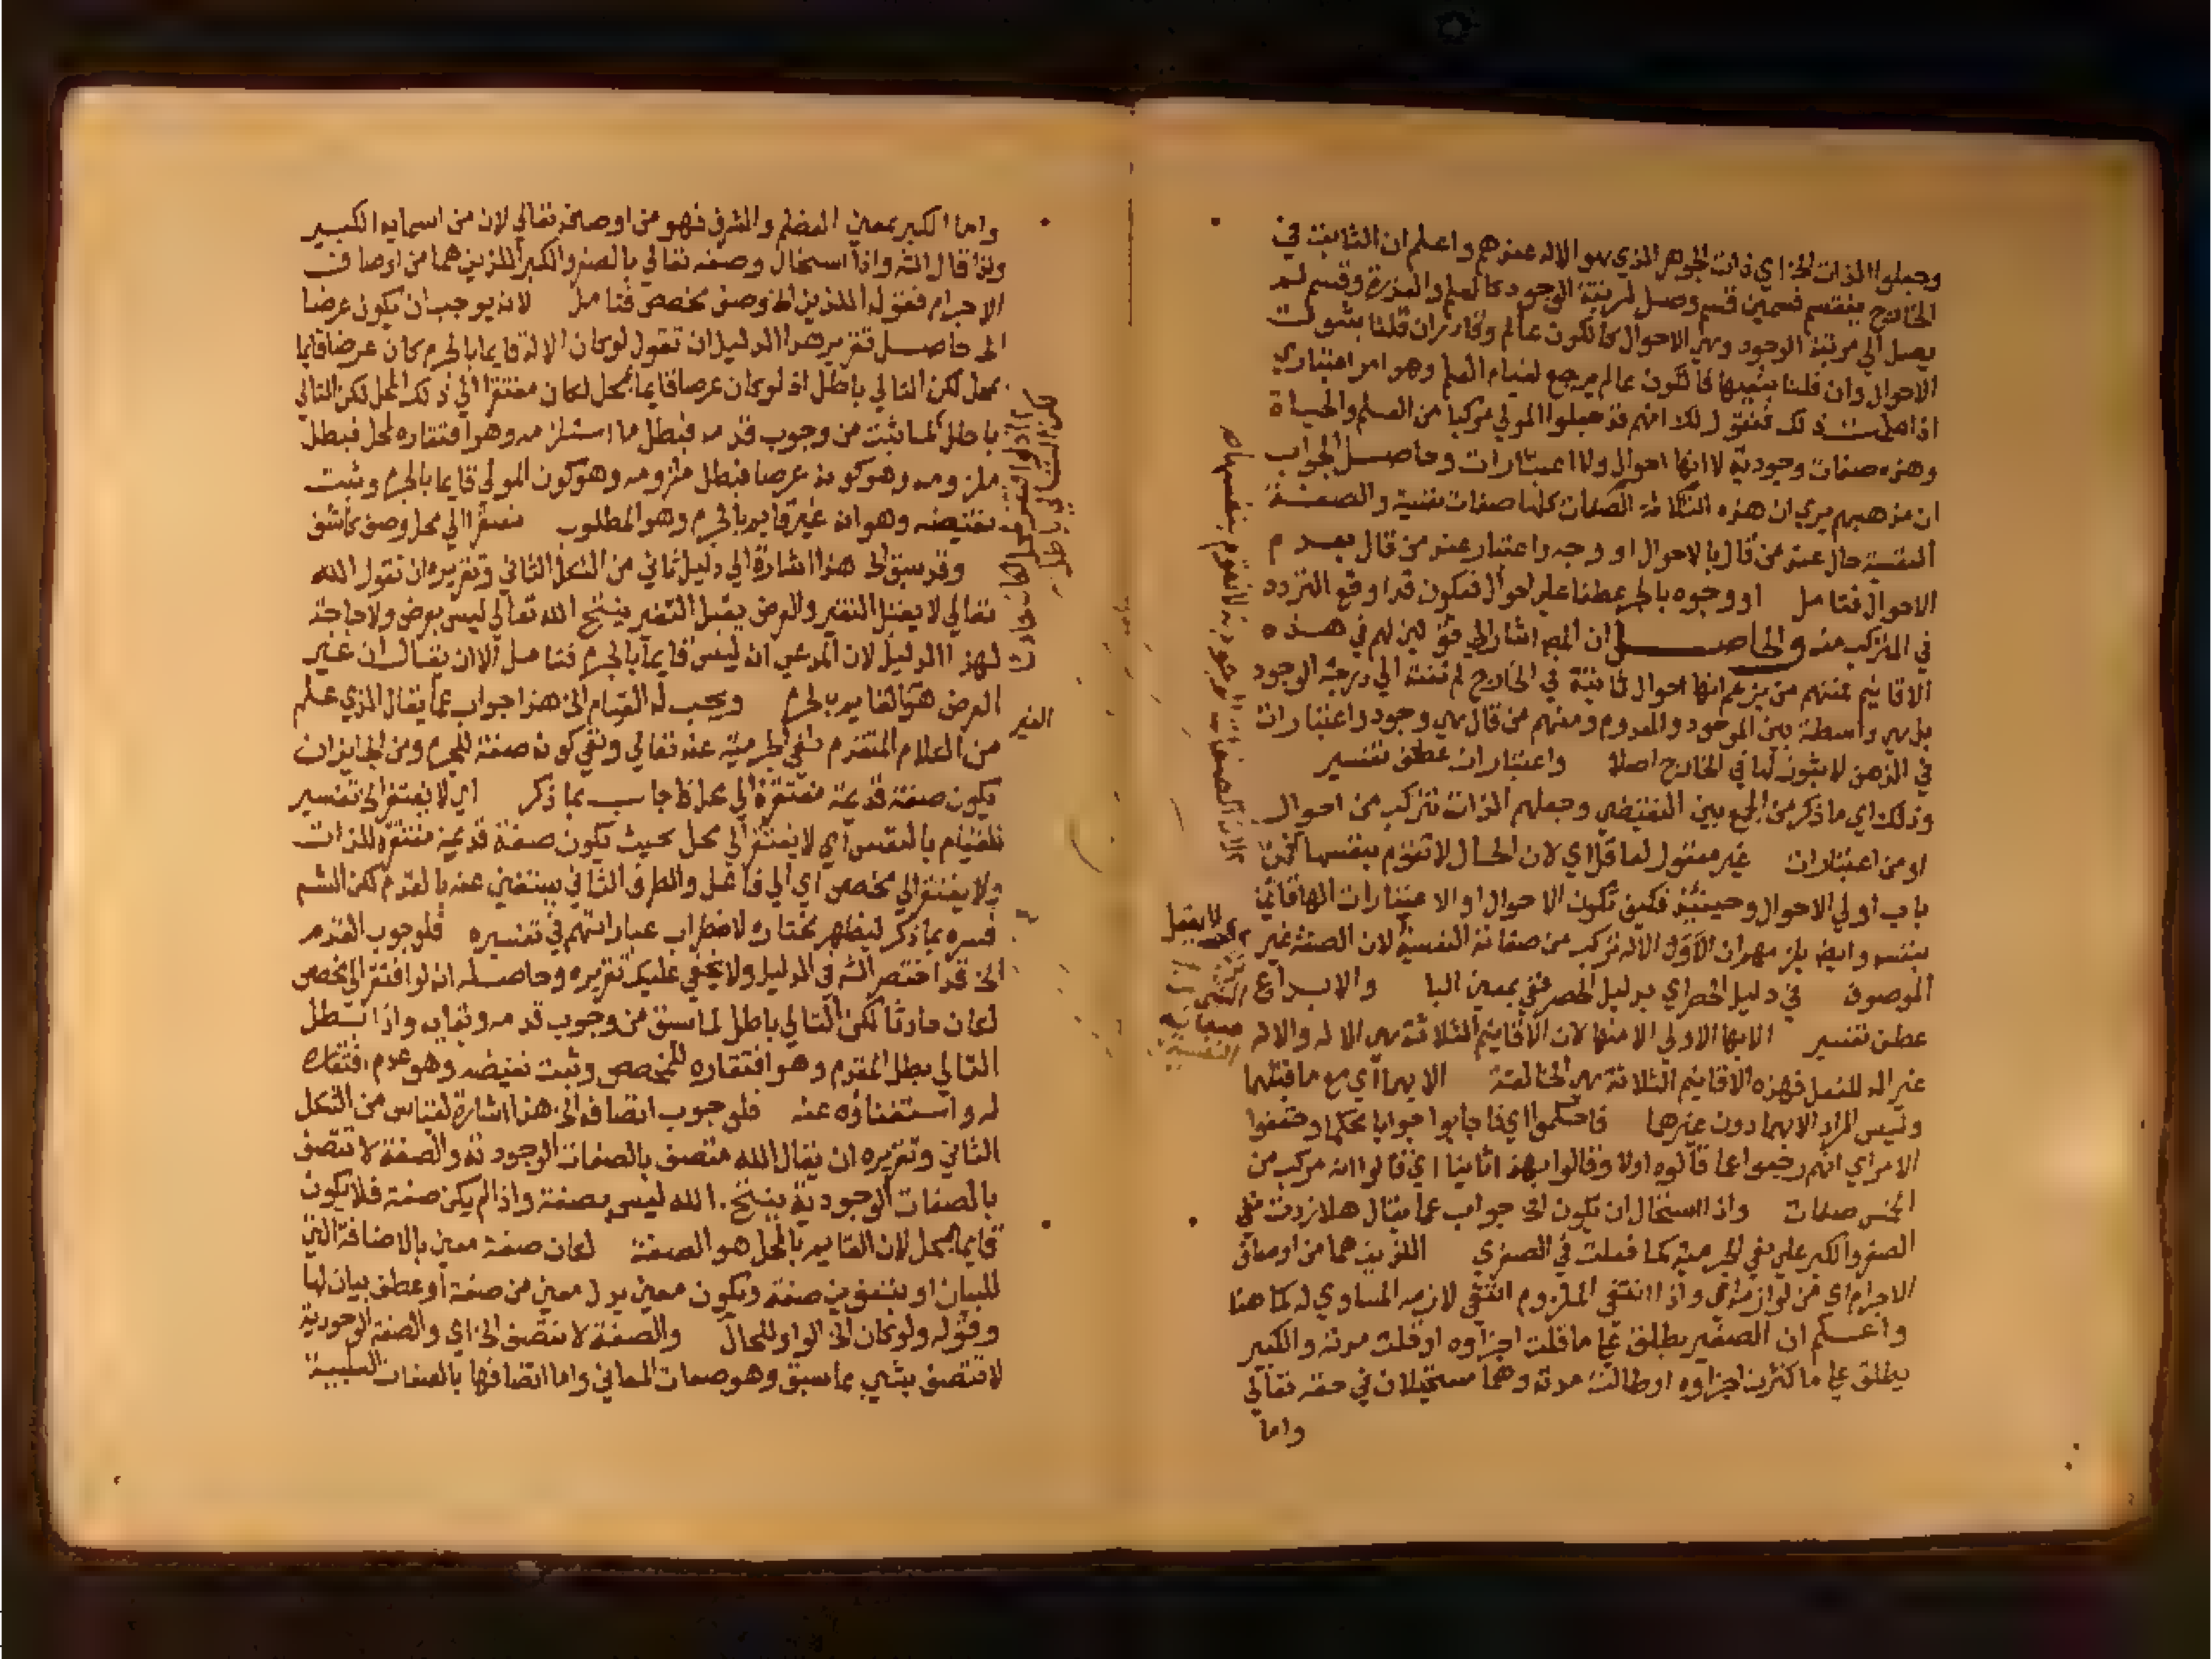 وجعلوا الذات الخ اي ذات الجوهر الذي هو الاله عندهم واعلم ان الثابت في
الخارج ينقسم قسمين قسم وصل لمرتبة الوجود كالعلم والقدرة وقسم لم
يصل الي مرتبة الوجود وهي الاحوال كالكون عالم وقادر ان قلنا بثبوت
الاحوال وان قلنا بنفيها فالكون عالم يرجع لقيام العلم وهو امر اعتباري
اذا ذلك فنقول لك انهم قد جعلوا المولي مركبا من العلم والحياة
وهذه صفات وجودية لا انها احوال ولا اعتبارات وحاصل الجواب
ان مذهبهم يري ان هذه الثلاثة الصفات كلها صفات نفسية والصفة
النفسية حال عند من قال بالاحوال او وجه واعتبار عند من قال بعدم
الاحوال فتامل او وجوه بالجر عطفا علي احوال فيكون قد اوقع التردد
في المتركب منه والحاصل ان المص اشار الي فرقتين لهم في هذه
الاقانيم فمنهم من يزعم انها احوال ثابتة في الخارج لم تنته الي درجة الوجود
بل هي واسطة بين الموجود والمعدوم ومنهم من قال هي وجوه واعتبارات
في الذهن لا ثبوت لها في الخارج اصلا واعتبارات عطف تفسير
وذلك اي ما ذكر من الجمع بين النقيضين وجعلهم الذات تتركب من احوال
او من اعتبارات غير معقول لعاقل اي لان الحال لا تقوم بنفسها فمن
باب اولي الاحوال وحينئذ فكيف تكون الاحوال او الاعتبارات الها قائما
بنفسه وايضا يلزمهم ان الاله تركب من صفاته النفسية لان الصفة غير
الموصوف في دليل الحصر اي بدليل الحصر ففي بمعني البا والابداع
عطف تفسير الا بها الاولي الا منها لان الاقانيم الثلاثة هي الاله والاله
عند اله للفعل فهذه الاقانيم الثلاثة هي الخالقة الا بهما اي مع ما قبلهما
وليس المراد الا بهما دون غيرهما فاحكموا اي فاجابوا جوابا محكما وحققوا
الامر اي انهم رجعوا عما قالوه اولا وقالوا بهذا ثانيا اي قالوا انه مركب من
خمس صفات واذا استحال ان يكون الخ جواب عما يقال هلا زدت نفي
الصغر والكبر علي نفي الجرمية كما فعلت في الصغري اللذين هما من اوصاف
الاجرام اي من لوازمها اي واذا انتفي الملزوم انتفي لازمه المساوي له كما هنا
واعلم ان الصغير يطلق علي ما قلت اجزاوه او قلت مدته والكبير
يطلق علي ما كثرت اجزاوه او طالت مدته وهما مستحيلان في حقه تعالي
واما
لان الصفات الوجودية لا تقوم بنفسها
واما الكبر بمعني العظم والشرف فهو من اوصافه تعالي لان من اسمايه الكبير
ولذا قال الش واذا استحال وصفه تعالي بالصغر والكبر اللذين هما من اوصاف
الاجرام فقوله اللذين الخ وصف مخصص فتامل لانه يوجب ان يكون عرضا
الخ حاصل تقرير هذا الدليل ان تقول لو كان الاله قايما بالجرم كان عرضا قايما
بمحل لكن التالي باطل اذ لو كان عرضا قايما بمحل لكان مفتقرا الي ذلك المحل لكن التالي
باطل لما ثبت من وجوب قدمه فبطل ما استلزمه وهو افتقاره لمحل فبطل
ملزومه وهو كونه عرضا فبطل ملزومه وهو كون المولي قايما بالجرم وثبت
نقيضه وهو انه غير قايم بالجرم وهو المطلوب مفتقرا الي محل وصف كاشف
وقد سبق الخ هذا اشارة الي دليل ثاني من الشكل الثاني وتقريره ان تقول الله
تعالي لا يقبل التغير والعرض يقبل التغير ينتج الله تعالي ليس بعرض ولا حاجة
لهذا الدليل لان المدعي انه ليس قايما بالجرم فتامل الا ان يقال ان غير
العرض هو القايم بالجرم ويجب له القيام الخ هذا جواب عما يقال الذي علم
من الكلام المتقدم نفي الجرمية عنه تعالي ونفي كونه صفة للجرم ومن الجايز ان
يكون صفة قديمة مفتقرة الي محل فاجاب بما ذكر اي لا يفتقر الخ تفسير
للقيام بالنفس اي لا يفتقر الي محل بحيث يكون صفة قديمة مفتقرة للذات
ولا يفتقر الي مخصص اي الي فاعل والطرف الثاني يستغني عنه بالقدم لكن الشم
فسره بما ذكر ليظهر مختاره لاضطراب عباراتهم في تفسيره فلوجوب القدم
الخ قد اختصر الش في الدليل ولا يخفي عليك تقريره وحاصله انه لو افتقر الي مخصص
لكان حادثا لكن التالي باطل لما سبق من وجوب قدمه وبقايه واذا بطل
التالي بطل المقدم وهو افتقاره للمخصص وثبت نقيضه وهو عدم افتقاره
له واستغناؤه عنه فلوجوب اتصافه الخ هذا اشارة لقياس من الشكل
الثاني وتقريره ان يقال الله متصف بالصفات الوجودية والصفة لا تتصف
بالصفات الوجودية ينتج الله ليس بصفة واذا لم يكن صفة فلا يكون
قايما بمحل لان القايم بالمحل هو الصفة لكان صفة معني بالاضافة التي
للبيان او بتنوين صفة ويكون معني بدل معني من صفة او عطف بيان لها
وقوله ولو كان الخ الواو للحال والصفة لا تتصف الخ اي والصفة الوجودية
لا تتصف بشي مما سبق وهو صفات المعاني واما اتصافها بالصفات السلبية
لكن التالي باطل
التغير